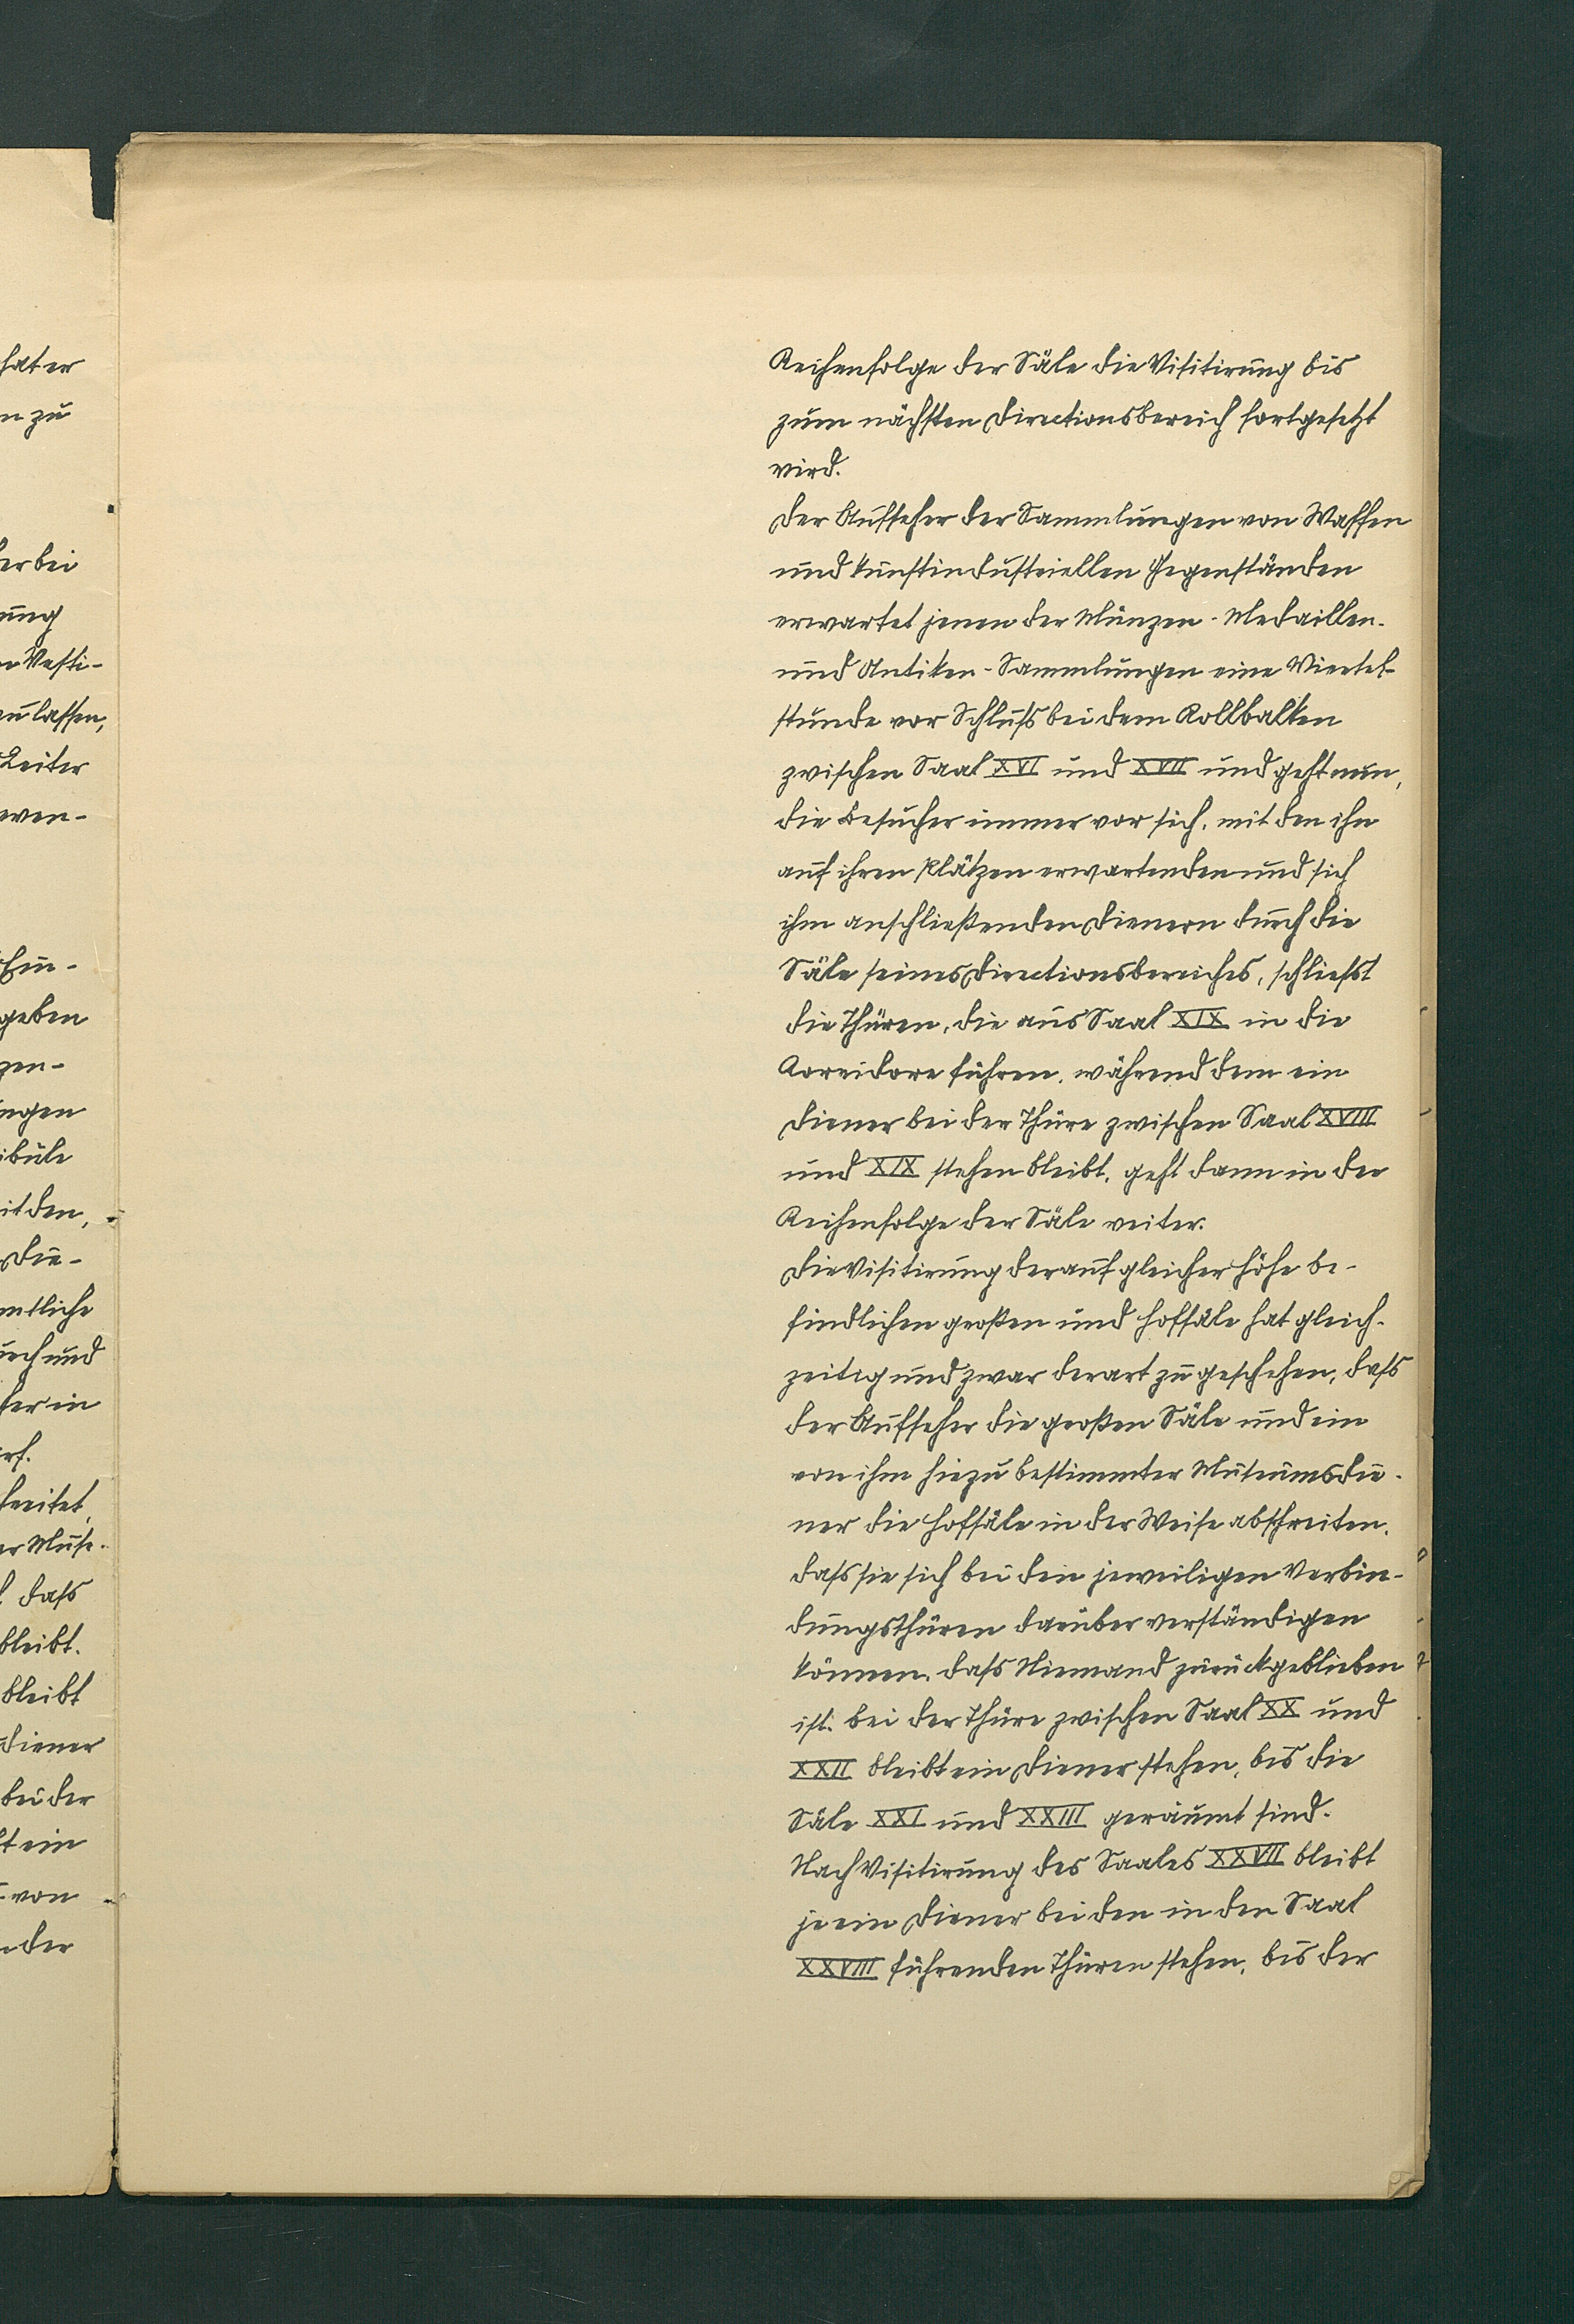 hat er
n zu
er bei
ung
Vesti-
zu lassen,
Leiter
wen-
geben
zen-
ungen
ibule
it den,
Die-
mtliche
und
her in
rf.
hreitet,
er Muse-
dass
bleibt.
bleibt
diener
bei der
t ein
von
der
Reihenfolge der Säle die Visitirung bis
zum nächsten Directionsbereich fortgesetzt
wird.
Der Aufseher der Sammlungen von Waffen
und kunstindustriellen Gegenständen
erwartet jenen der Münzen- Medaillen-
und Antiken-Sammlungen eine Viertel-
stunde vor Schluß bei dem Rollbalken
zwischen Saal XVI und XVII und geht nun,
die Besucher immer vor sich, mit den ihn
auf ihren Plätzen erwartenden und sich
ihm anschließenden Dienern durch die
Säle seines Directionsbereiches, schließt
die Thüren, die aus Saal XIX in die
Korridore führen, während dem ein
Diener bei der Thüre zwischen Saal XVIII
und XIX stehen bleibt, geht dann in der
Reihenfolge der Säle weiter.
Die Visitirung der auf gleicher Höhe be-
findlichen großen und Hofsäle hat gleich-
zeitig und zwar derart zu geschehen, dass
der Aufseher die großen Säle und ein
von ihm hiezu bestimmter Museumsdie-
ner die Hofsäle in der Weise abschreiten,
dass sie sich bei den jeweiligen Verbin-
dungsthüren darüber verständigen
können, dass Niemand zurückgeblieben
ist. Bei der Thüre zwischen Saal XX und
XXII bleibt ein Diener stehen, bis die
Säle XXI und XXIII geräumt sind.
Nach Visitirung des Saales XXVII bleibt
je ein Diener bei den in den Saal
XXVIII führenden Thüren stehen, bis der